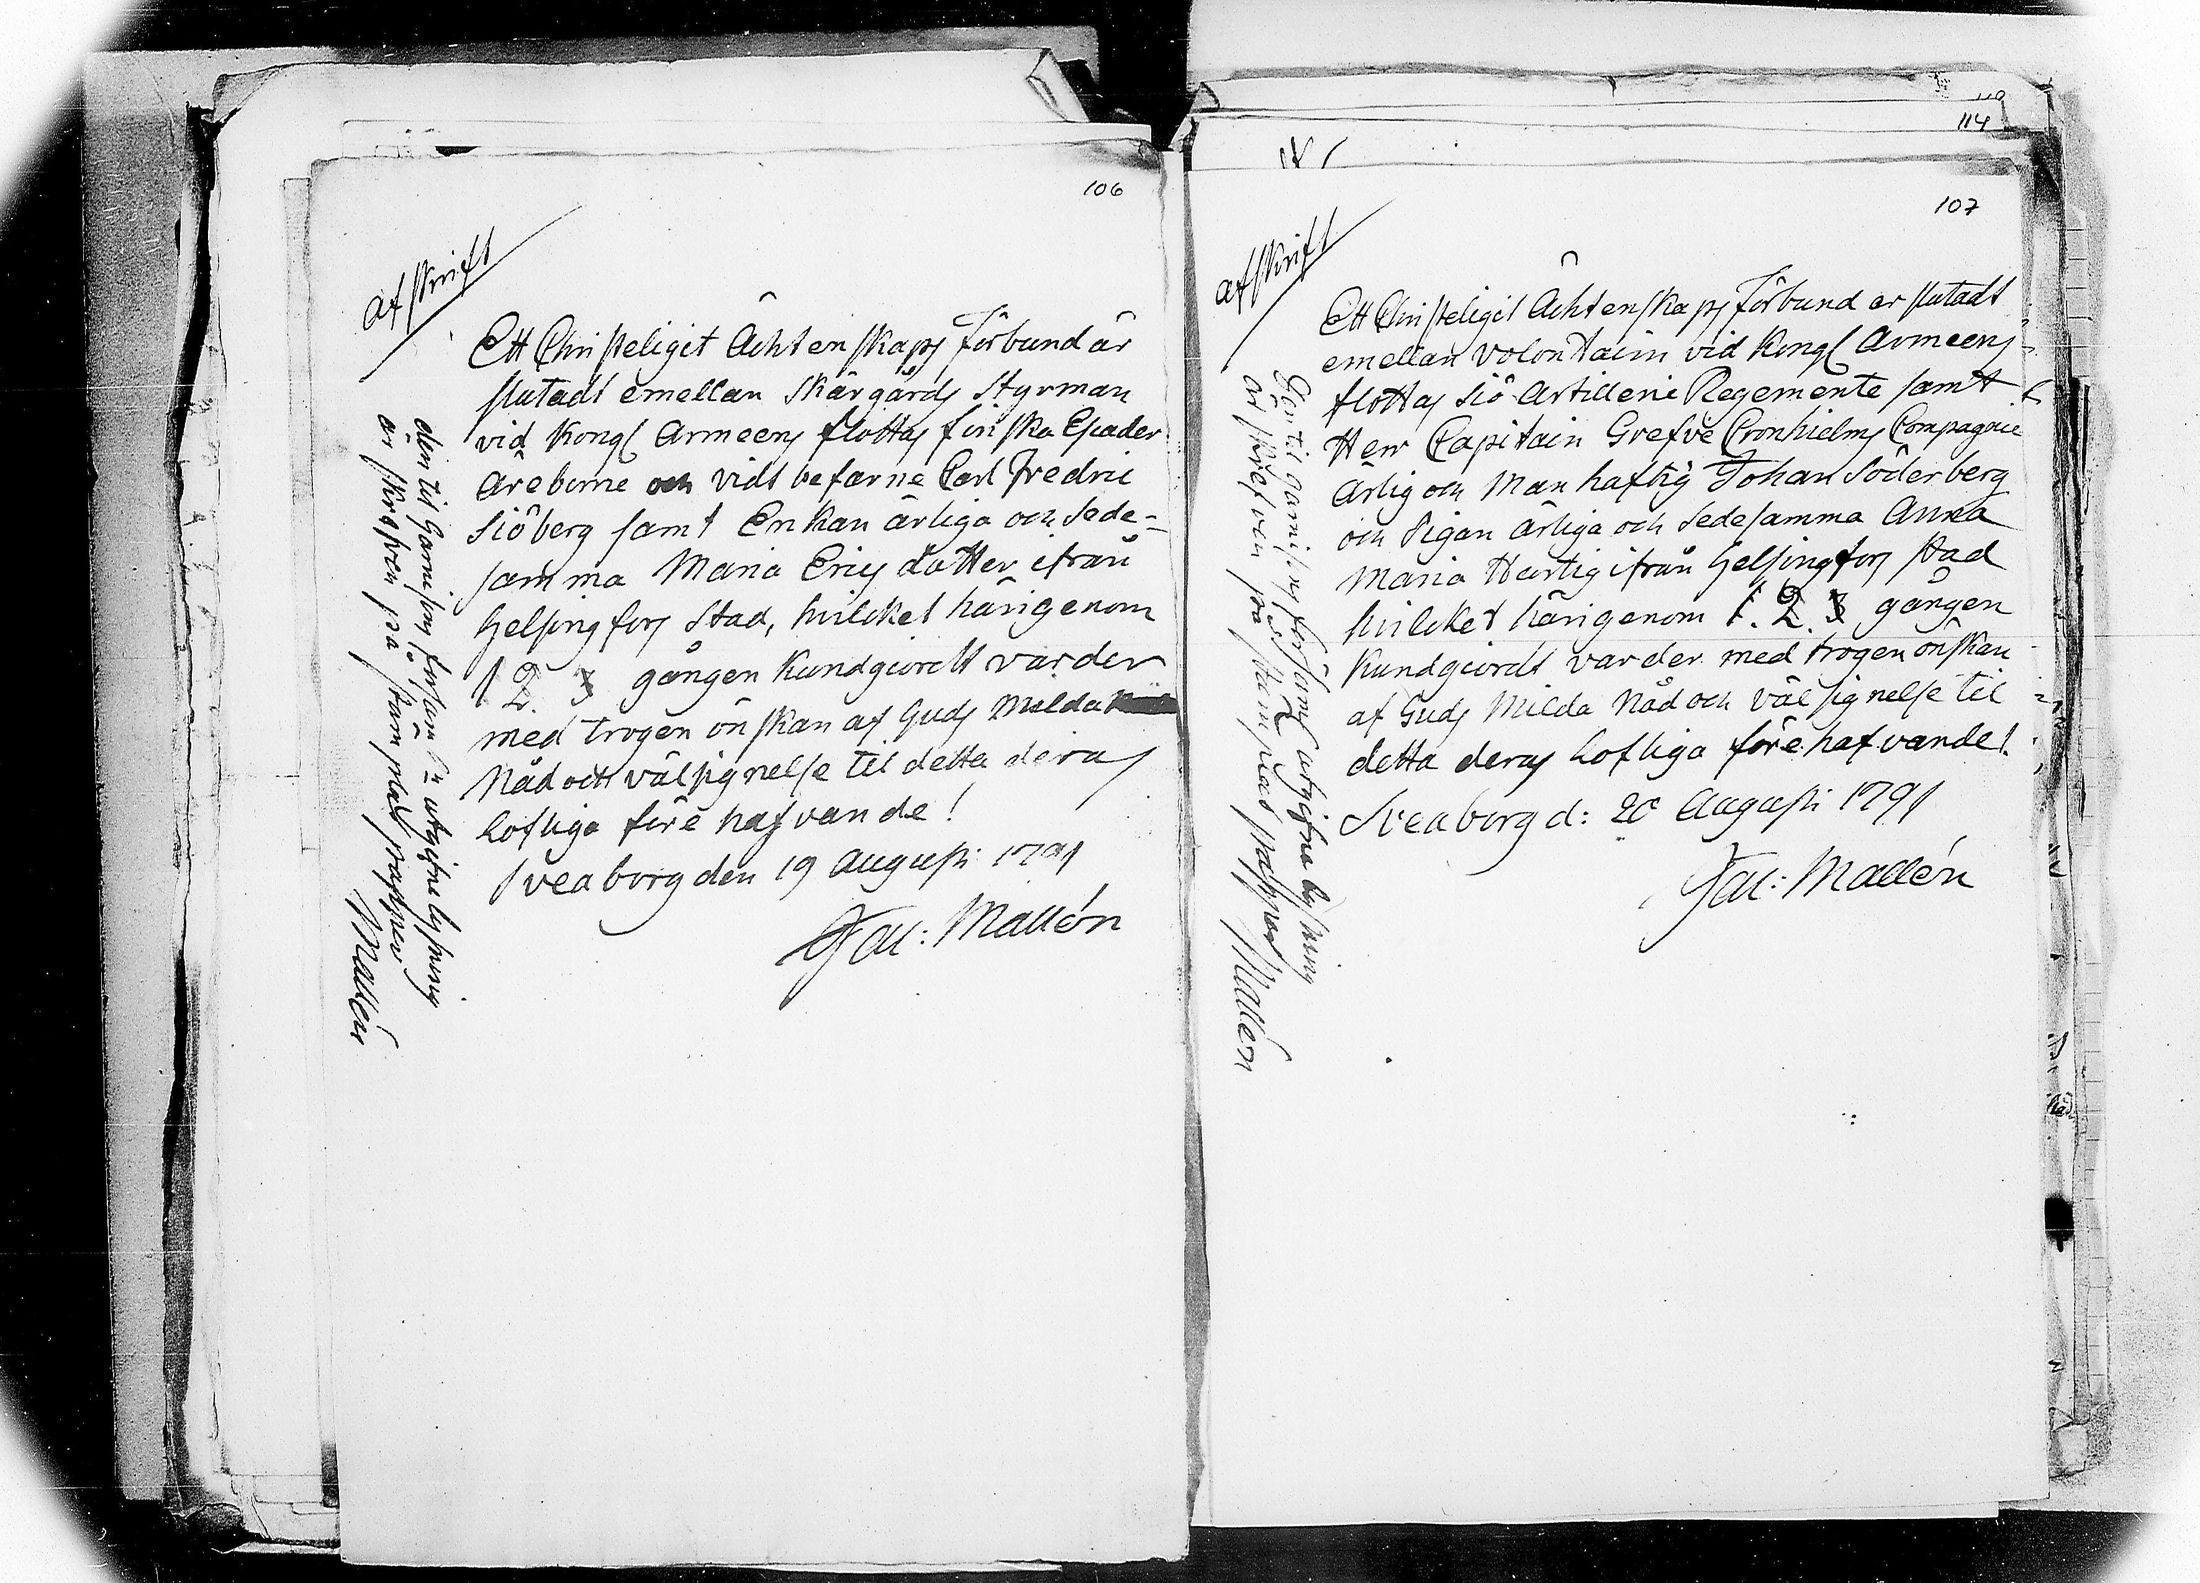 106
afskrift
Ett Christeligit Ächtenskaps Förbund är
slutadt emellan Skärgårds Styrman
vid Kongl Armeens flottas finska Escader
Äreborne och vidt befarne Carl Fredric
Siöberg samt Enkan ärliga och Sede=
samma Maria Erics dotter ifrån
Helsingfors Stad, hvilcket härigenom
1 2. 3 gången kundgiordt varder
med trogen önskan af Guds Milda
Nåd och välsignelse til detta deras
Lofliga förehafvande!
Sveaborg den 19 Augusti 1791
Jac: Mallén
den til Garnisons församl:n utgifne lysning
är skrefven på stämplad papper
Mallén
110
114
107
afskrift
Ett Christeligit Ächtenskaps Förbund är slutadt
emellan Volontairn vid Kongl Armeens
flottas Siö Artillerie Regemente samt
Herr Capitain Grefve Cronhielms Compagnie
Ärlig och Manhaftig Johan Söderberg
och Pigan ärliga och Sedesamma Anna
Maria Hartig ifrån Helsingfors stad
hvilcket härigenom 1. 2. 3 gången
kundgiordt varder med trogen önskan
af Guds Milda Nåd och välsignelse til
detta deras Lofliga förehafvande!
Sveaborg d: 20 Augusti 1791
Jac: Mallén
Den til garnisons församl utgifna lysning
är skrefven på stämplad papper
Mallén